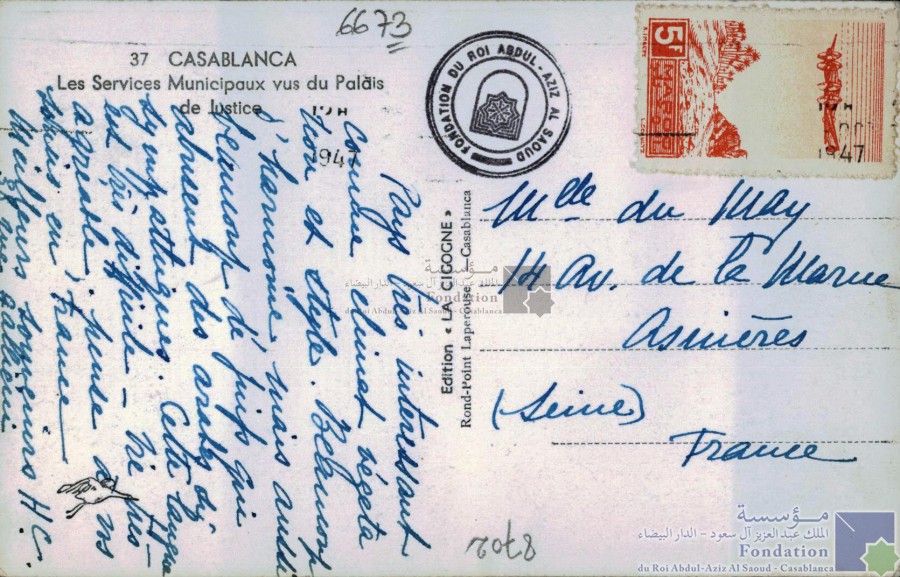 6673
37 CASABLANCA
Les Services Municipaux vus du Palais
de Justice
FONDATION DU ROI ABDUL-AZIZ AL SAOUD
5F
MAROC
1947
1947
Pays très intéressant
comme climat végéta
tion et style. Beaucoup
d'harmonie mais aussi
beaucoup de juifs qui
abusent des arabes
sympathiques. Cette langue
est très difficile -
agréable
France
Meilleurs
Mlle du May
14 Av. de la Marne
Asnières
(Seine)
France
Edition « LA CIGOGNE »
Rond-Point Laperouse - Casablanca
مؤسسة
الملك عبد العزيز آل سعود - الدار البيضاء
Fondation
du Roi Abdul-Aziz Al Saoud - Casablanca
8702
مؤسسة
الملك عبد العزيز آل سعود - الدار البيضاء
Fondation
du Roi Abdul-Aziz Al Saoud - Casablanca